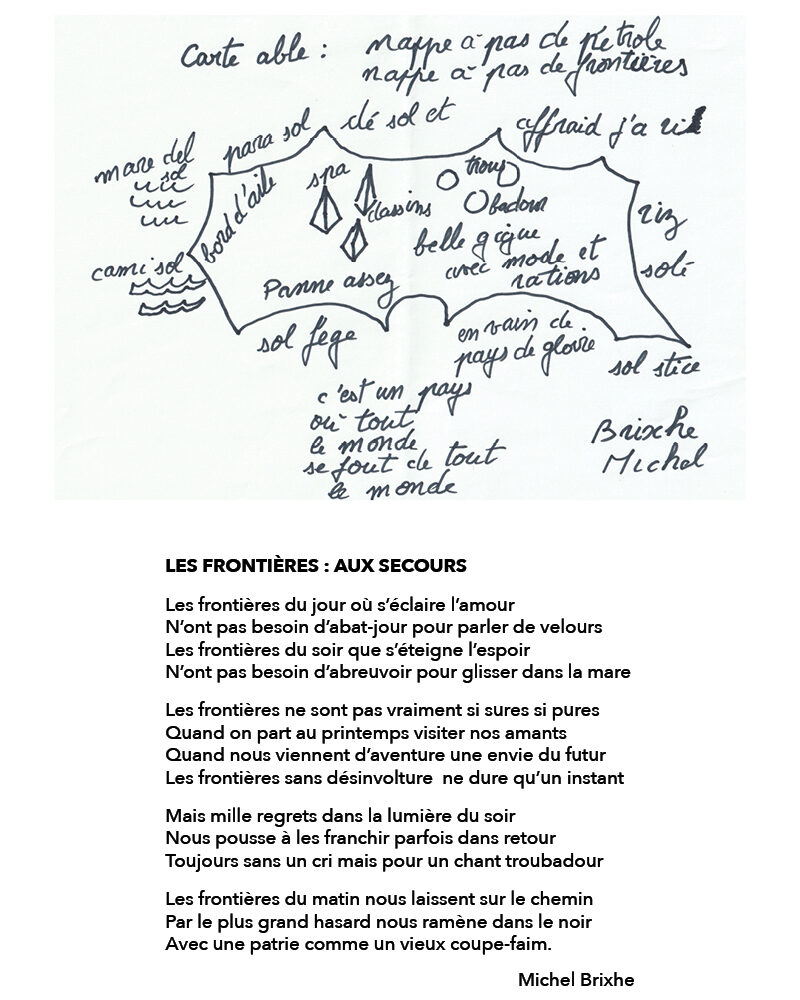 Carte able : nappe à pas de pétrole
nappe à pas de frontières
mare del
sol
para sol
clé sol et
affraid j'a
bord d'aile
spa
dassins
trou
badour
riz
solé
cami sol
belle gigue
avec mode et
rations
Panne assez
sol fège
en vain de
pays de gloire
sol stice
c'est un pays
où tout
le monde
se fout de tout
le monde
Brixhe
Michel
LES FRONTIÈRES : AUX SECOURS
Les frontières du jour où s'éclaire l'amour
N'ont pas besoin d'abat-jour pour parler de velours
Les frontières du soir que s'éteigne l'espoir
N'ont pas besoin d'abreuvoir pour glisser dans la mare
Les frontières ne sont pas vraiment si sures si pures
Quand on part au printemps visiter nos amants
Quand nous viennent d'aventure une envie du futur
Les frontières sans désinvolture ne dure qu'un instant
Mais mille regrets dans la lumière du soir
Nous pousse à les franchir parfois dans retour
Toujours sans un cri mais pour un chant troubadour
Les frontières du matin nous laissent sur le chemin
Par le plus grand hasard nous ramène dans le noir
Avec une patrie comme un vieux coupe-faim.
Michel Brixhe